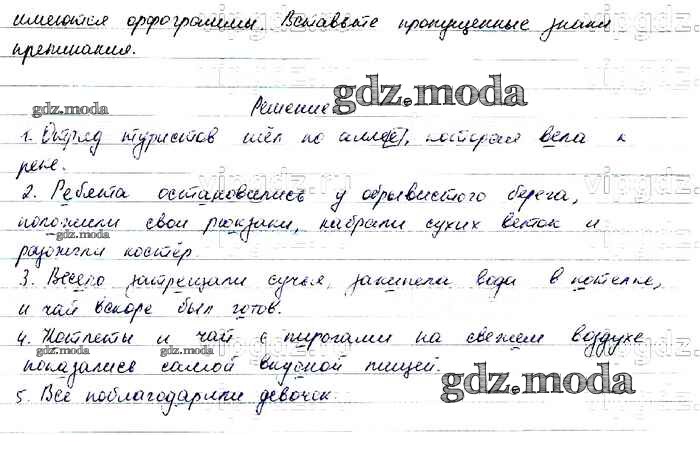 имеются орфограммы. Вставьте пропущенные знаки
препинания.
Решение
1. Отряд туристов шёл по аллее, которая вела к
реке.
2. Ребята остановились у обрывистого берега,
положили свои рюкзаки, набрали сухих веток и
разожгли костёр.
3. Весело затрещали сучья, закипела вода в котелке,
и чай вскоре был готов.
4. Котлеты и чай с пирогами на свежем воздухе
показались самой вкусной пищей.
5. Все поблагодарили девочек.
gdz.moda
gdz.moda
gdz.moda
gdz.moda
gdz.moda
gdz.moda
gdz.moda